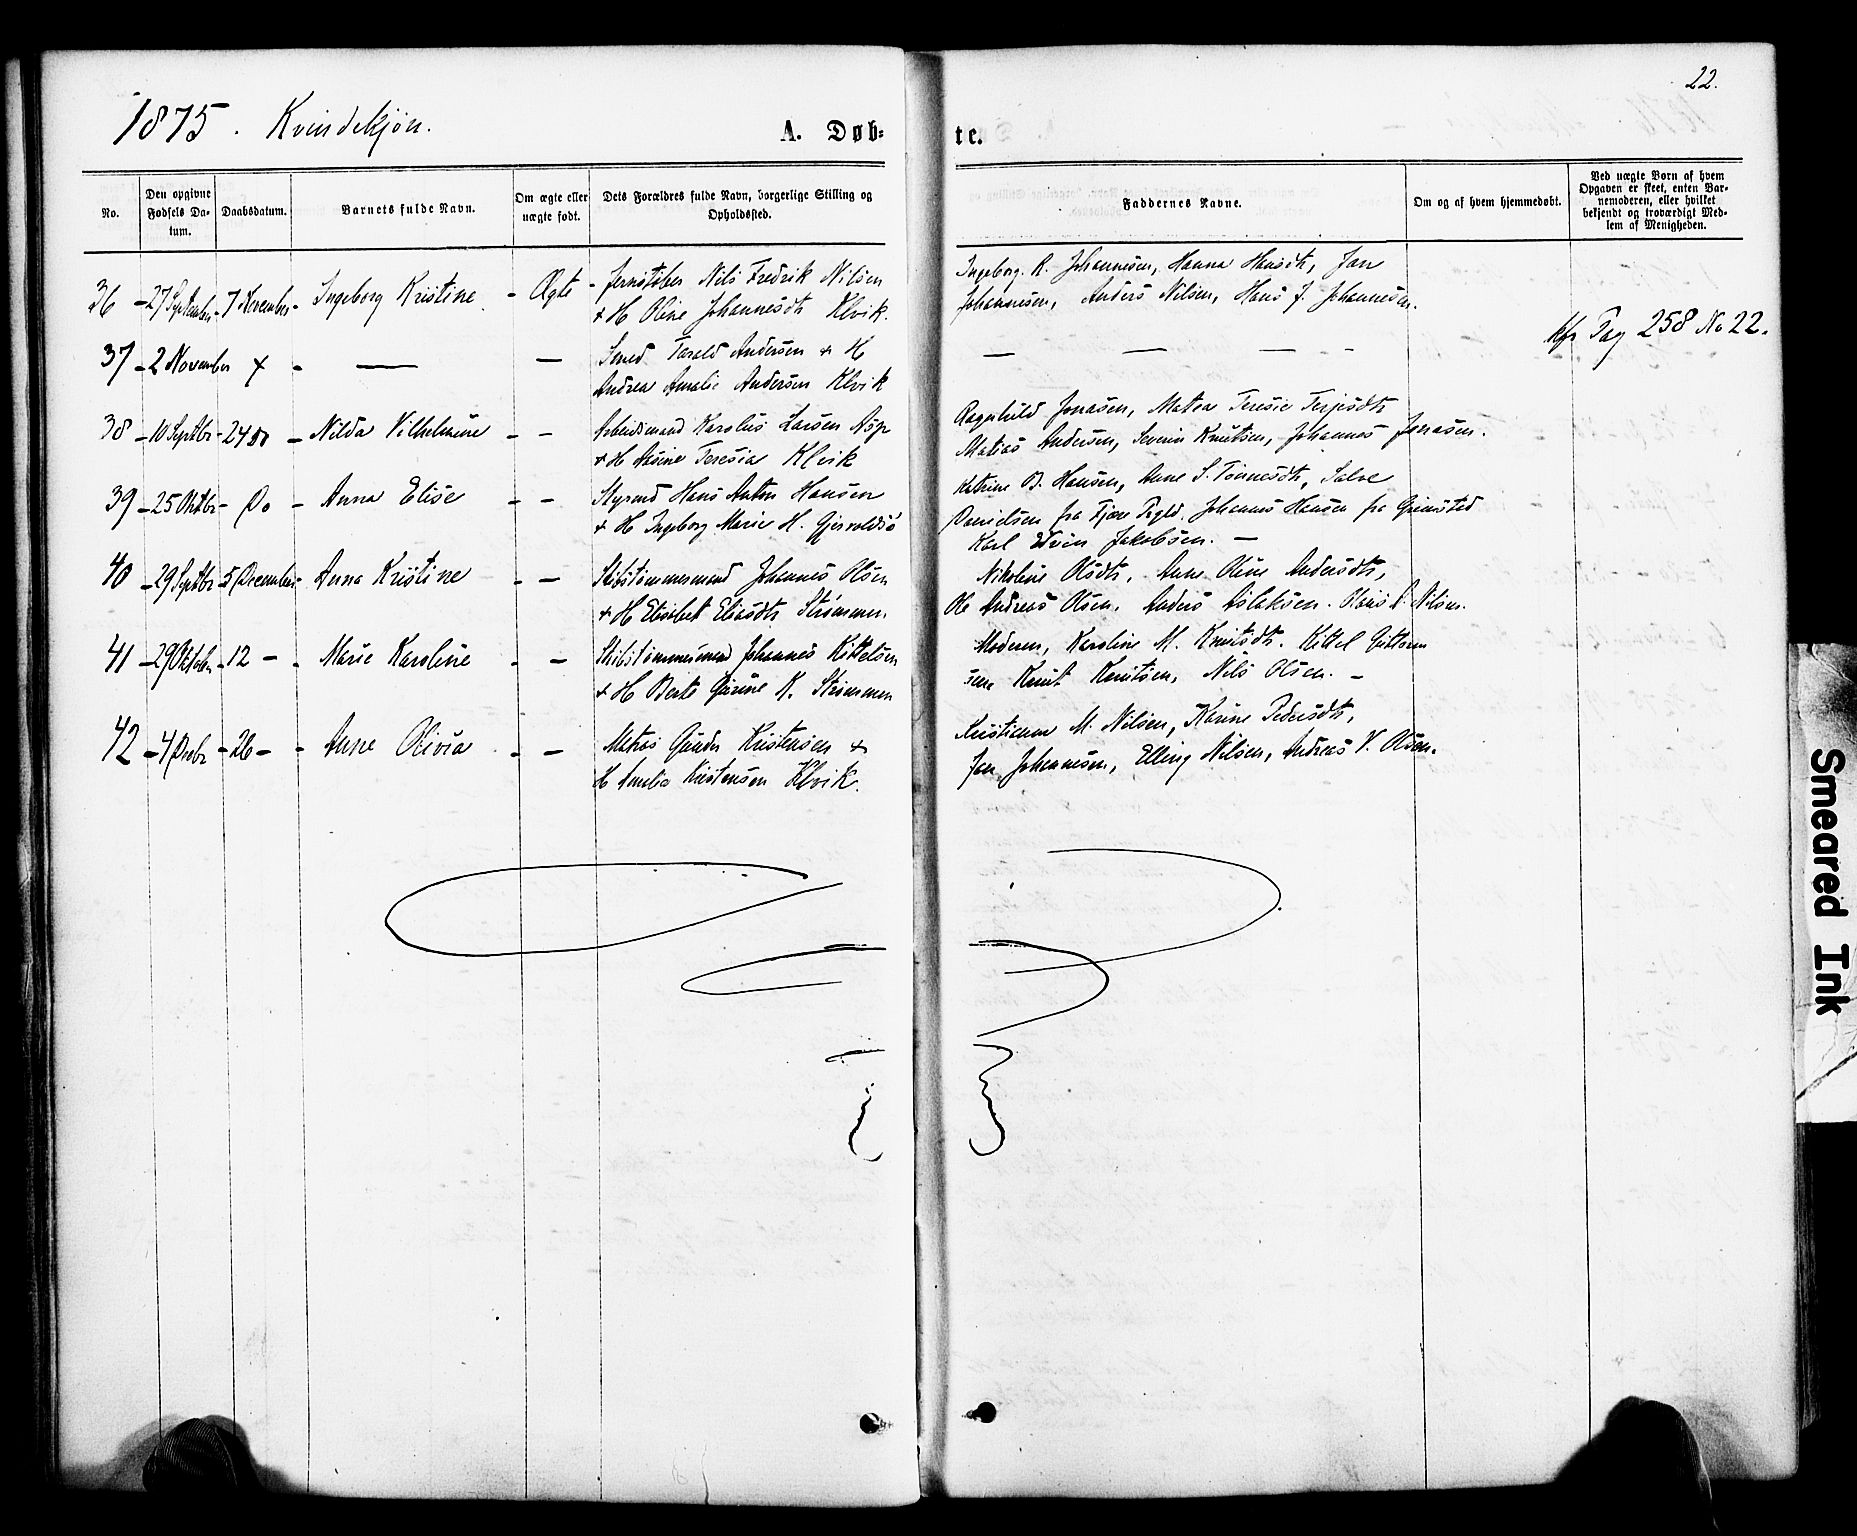 22.
1875. Kvindekjøn.
A. Døb-
te.
No.
Den opgivne Fødsels Da-
tum.
Daabsdatum.
Barnets fulde Navn.
Om ægte eller
uægte født.
Dets Forældres fulde Navn, borgerlige Stilling og
Opholdssted.
Faddernes Navne.
Om og af hvem hjemmedøbt.
Ved uægte Børn af hvem
Opgaven er skeet, enten Bar-
nemoderen, eller hvilket
bekjendt og troværdigt Med-
lem af Menigheden.
36 - 27 September - 7 November - Ingeborg Kristine - Ægte - Jernstøber Nils Fredrik Nilsen
+ H Oline Johannesdtr Klvik.
Ingeborg R. Johannesen, Hanna Hansdtr, Jan
Johannesen, Anders Nilsen, Hans J. Johannesen.
37 - 2 November + - — — Smed Tarald Andersen + H
Andrea Amalie Andersen Klvik
— — — -
Pag 258 No 22.
38 - 10 Septbr - 24 Do - Nilda Vilhelmine - - Arbeidsmand Karolus Larsen
+ H Teresia Klvik
Ragnhild Jonasen, Matea Teresie Terjesdtr
Matias Andersen, Severin Knutsen, Johannes Jonasen.
39 - 25 Oktbr - Do - Anna Elise - - Styrmd Hans Anton Hansen
+ H Ingeborg Marie H. Gjervoldsø
Katrine B. Hansen, Anne S. Tønnesdtr, Salve
Danielsen fra Fjære Pregld. Johannes Hansen fra Grimstad
Karl Jakobsen. —
40 - 29 Septbr - 5 December - Anna Kristine - - Skibstømmermand Johannes Olsen
+ H Elisabet Eliasdtr Strømmen.
Nikoline Olsdtr, Anne Oline Andersdtr,
Ole Andreas Olsen, Anders Aslaksen. Nilsen.
41 - 29 Oktober - 12 - - Marie Karoline - - Skibstømmermand Johannes Kittelsen
+ H Berte K. Strømmen
Moderen, Karoline M. Knutsdtr. Kittel Guttorm
sen, Knut Knutsen, Nils Olsen. —
42 - 4 Decbr - 26 - - Anne Olivia - - Matros Gunder Kristensen +
H Amalia Kristensen Klvik.
M. Nilsen, Karine Pedersdtr,
Jan Johannesen, Elling Nilsen, Andreas V. Olsen.
Smeared Ink